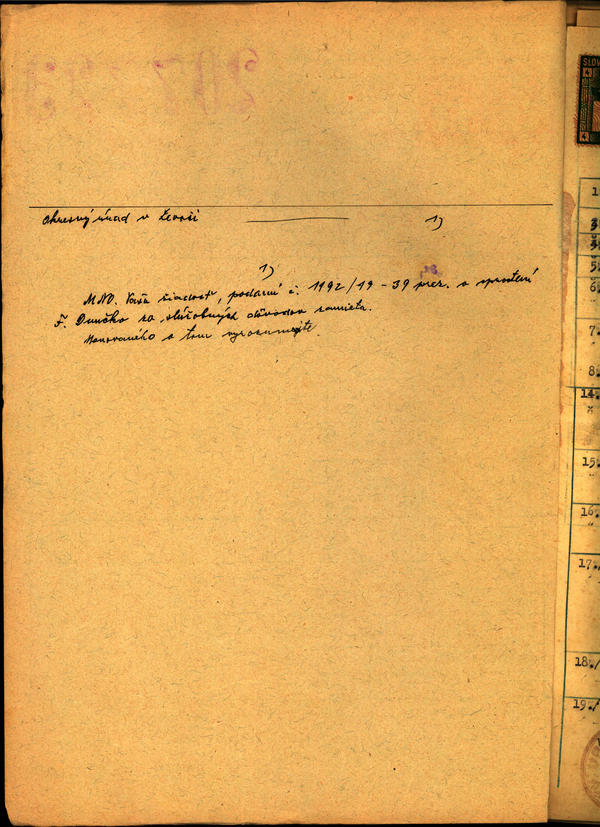 Okresný úrad v Levoči 1)
1)
MNO. Vašu žiadosť, podanú č. 1192/19-39 prez. o sprostení
F. Dunčko zo služobných dôvodov zamieta.
Menovaného o tom vyrozumejte.
SLOV
4
4
1
3
3.
5.
6.
7.
8.
14.
"
15.
"
16.
"
17./
18./
19./
"